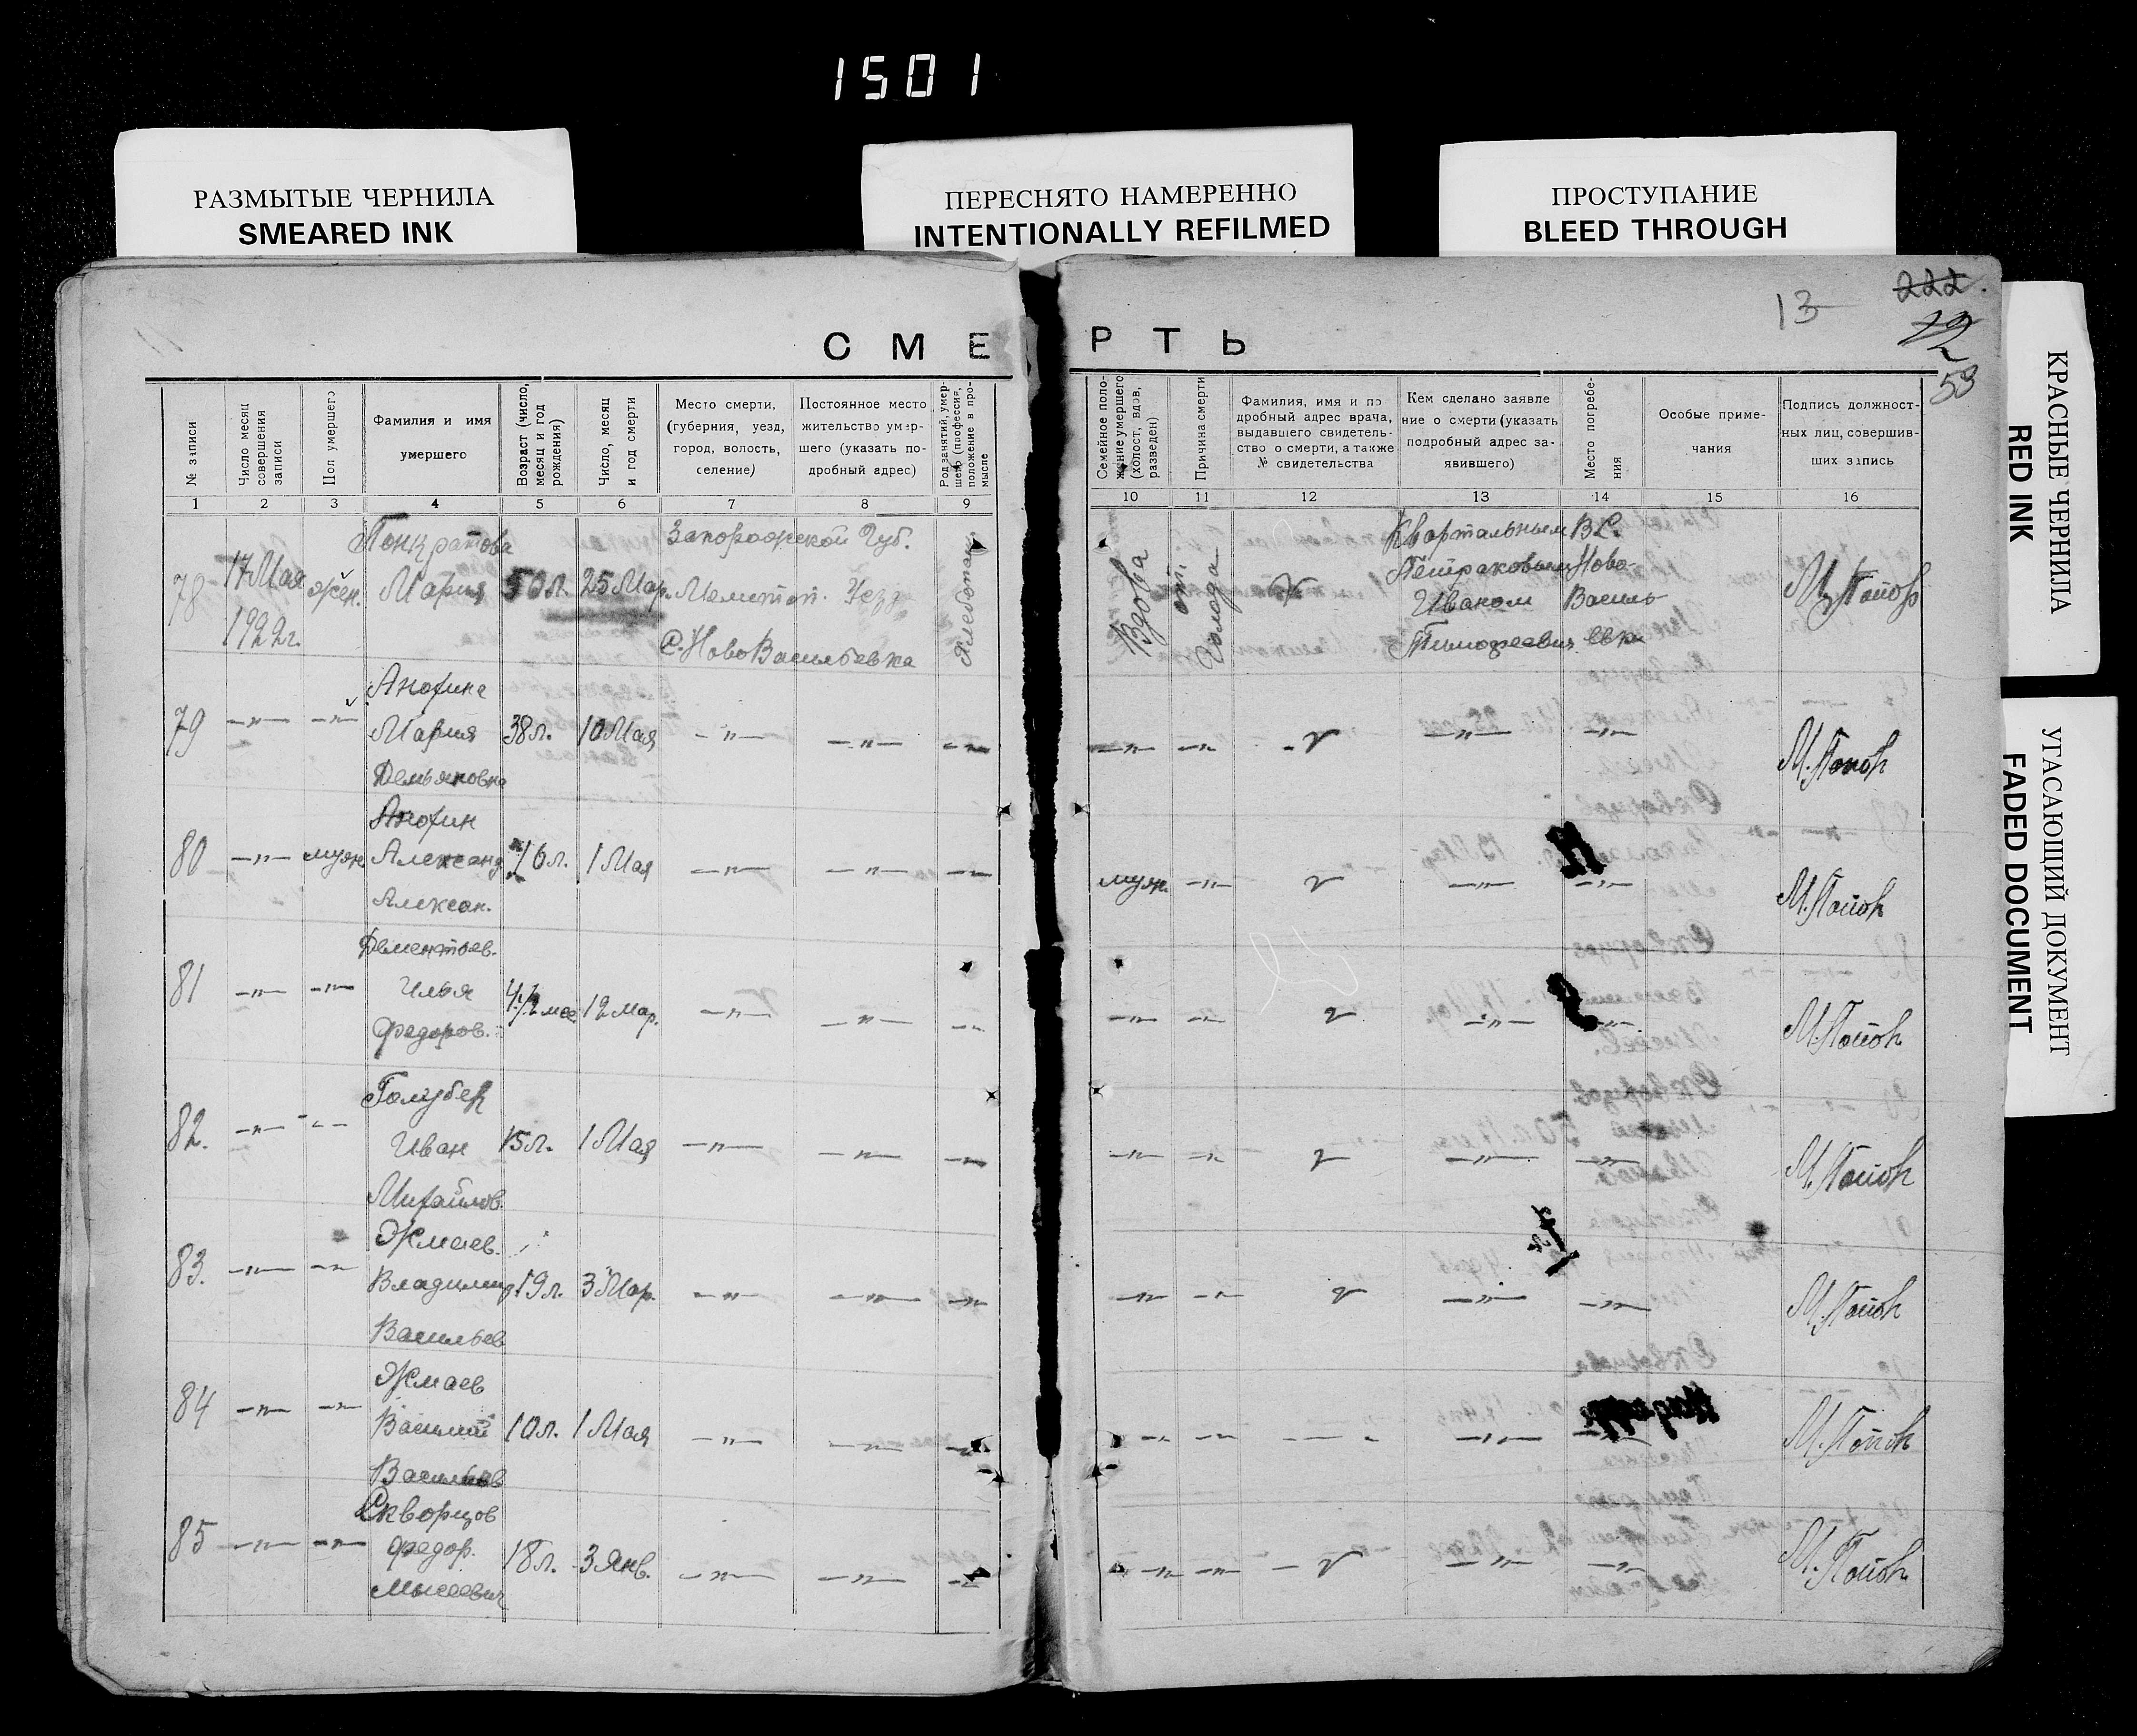 1501
РАЗМЫТЫЕ ЧЕРНИЛА
SMEARED INK
ПЕРЕСНЯТО НАМЕРЕННО
INTENTIONALLY REFILMED
ПРОСТУПАНИЕ
BLEED THROUGH
КРАСНЫЕ ЧЕРНИЛА
RED INK
УГАСАЮЩИЙ ДОКУМЕНТ
FADED DOCUMENT
13
222.
53
СМЕРТЬ
№ записи
Число месяц
совершения
записи
Пол умершего
Фамилия и имя
умершего
Возраст (число,
месяц и год
рождения)
Число, месяц
и год смерти
Место смерти,
(губерния, уезд,
город, волость,
селение)
Постоянное место
жительство умер-
шего (указать по-
дробный адрес)
Род занятий, умер-
шего (профессия,
положение в про-
мысле
Семейное поло-
жение умершего
(холост, вдов,
разведен)
Причина смерти
Фамилия, имя и по
дробный адрес врача,
выдавшего свидетель-
ство о смерти, а также
№ свидетельства
Кем сделано заявле
ние о смерти (указать
подробный адрес за-
явившего)
Место погребе-
ния
Особые приме-
чания
Подпись должност-
ных лиц, совершив-
ших запись
1 2 3 4 5 6 7 8 9 10 11 12 13 14 15 16
78
17 Мая
1922г.
жен.
Понкратова
Мария
50 л.
25 Мар.
Запорожской Губ.
Мелитоп. Уезд
С. Ново Васильевка
Хлебопаш.
Вдова
от
голода
Квартальным
Петраковым
Иваном
Тимофеевич
В С.
Ново-
Василь
евк.
М. Попов
79 —"— —"—
Анохина
Мария
Демьяновна
38 л. 10 Мая —"— —"— —"— —"— —"— —"— —"— М. Попов
80 —"— муж
Анохин
Александ
Алексан.
16 л. 1 Мая —"— —"— —"— муж. —"— —"— —"— М. Попов
81 —"— —"—
Дементьев.
Илья
Федоров.
4 1/2 мес. 12 Мар. —"— —"— —"— —"— —"— —"— —"— М. Попов
82. —"— —"—
Голубев
Иван
Михайлов
15 л. 1 Мая —"— —"— —"— —"— —"— —"— —"— М. Попов
83. —"— —"—
Жмаев.
Владимир
Васильев
19 л. 3 Мар. —"— —"— —"— —"— —"— —"— —"— М. Попов
84 —"— —"—
Жмаев
Василий
Васильев
10 л. 1 Мая —"— —"— —"— —"— —"— —"— —"— М. Попов
85 —"— —"—
Скворцов
Федор.
Мысеевич
18 л. 3 Янв. —"— —"— —"— —"— —"— —"— —"— М. Попов